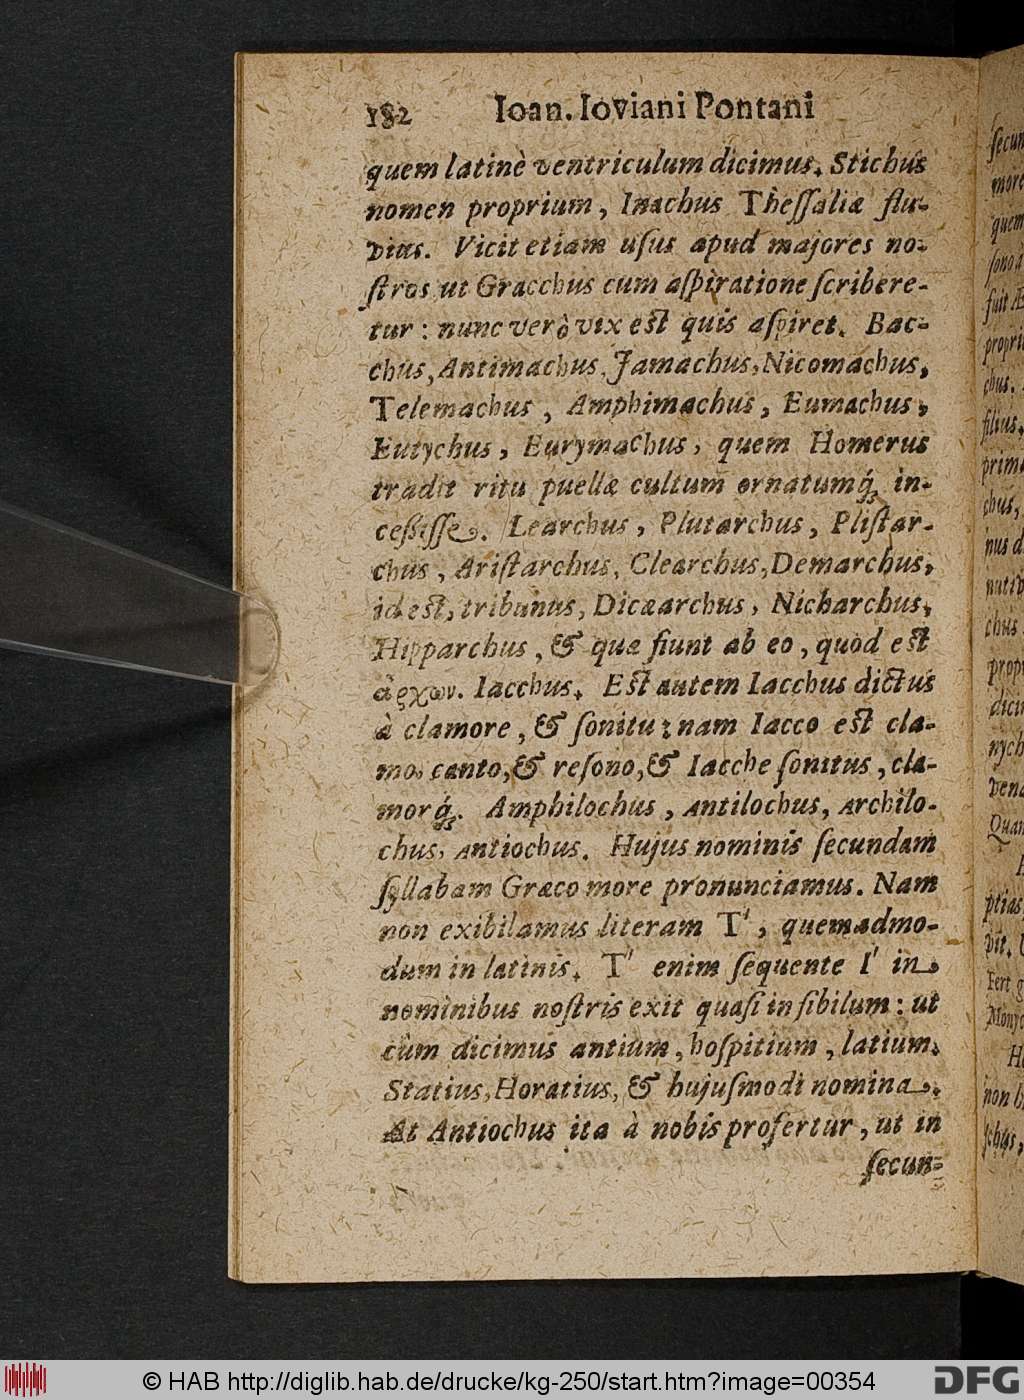 182 Ioan. Ioviani Pontani
quem latinè ventriculum dicimus. Stichus
nomen proprium, Inachus Thessaliæ flu-
vius. Vicit etiam usus apud majores no-
stros ut Gracchus cum aspiratione scribere-
tur: nunc verò vix est quis aspiret. Bac-
chus, Antimachus, Jamachus, Nicomachus,
Telemachus, Amphimachus, Eumachus,
Eutychus, Eurymachus, quem Homerus
tradit ritu puellæ cultum ornatumq́; in-
cessisse. Learchus, Plutarchus, Plistar-
chus, Aristarchus, Clearchus, Demarchus,
id est, tribunus, Dicæarchus, Nicharchus,
Hipparchus, & quæ fiunt ab eo, quòd est
ἀρχων. Iacchus. Est autem Iacchus dictus
à clamore, & sonitu: nam Iacco est cla-
mo, canto, & resono, & Iacche sonitus, cla-
morq́;. Amphilochus, Antilochus, Archilo-
chus, Antiochus. Hujus nominis secundam
syllabam Græco more pronunciamus. Nam
non exibilamus literam T', quemadmo-
dum in latinis. T' enim sequente I' in
nominibus nostris exit quasi in sibilum: ut
cùm dicimus antium, hospitium, latium,
Statius, Horatius, & hujusmodi nomina.
At Antiochus ita à nobis profertur, ut in
secun-
secun
more
quem
sono a
fuit Æ
propri
chus.
filius,
prima
chus,
nus d
nativ
chus
propr
dicim
nych
vena
Quan
ptias
vit.
Fert g
Monyc
non h
schus,
© HAB http://diglib.hab.de/drucke/kg-250/start.htm?image=00354
DFG